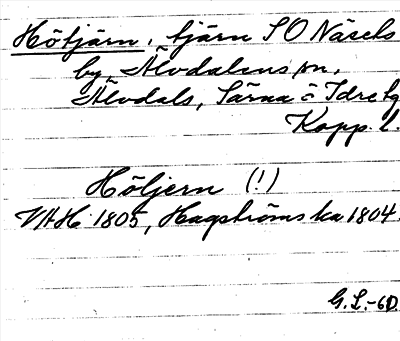 Hötjärn, tjärn SO Näsets
by, Älvdalens sn,
Älvdals, Särna o Idre tg
Kopp. l.
Höljern (!)
VAH 1805, Hagströms ka 1804.
G.L.-60.